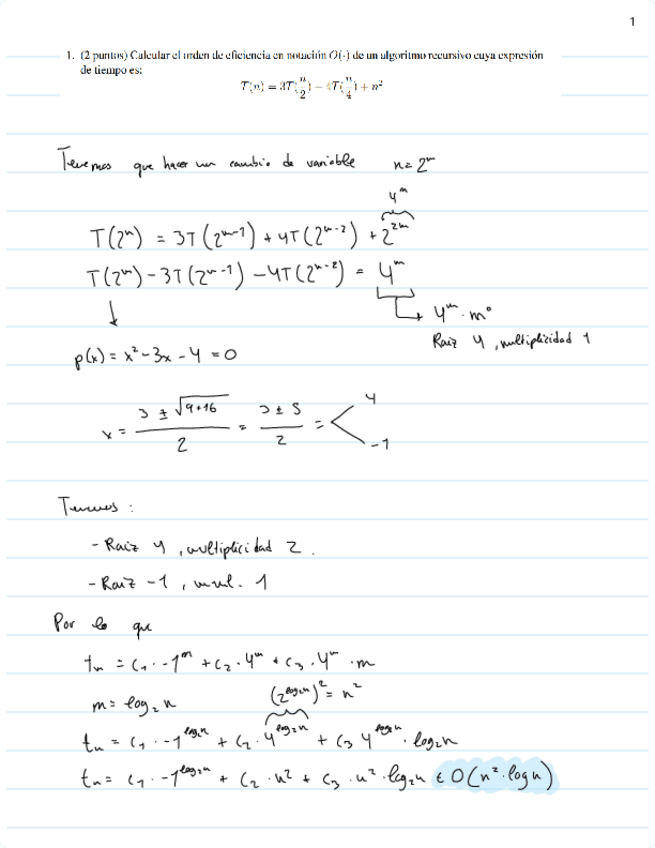 1
1. (2 puntos) Calcular el orden de eficiencia en notación O(·) de un algoritmo recursivo cuya expresión
de tiempo es:
T(n) = 3T(n/2) − 4T(n/4) + n²
Tenemos que hacer un cambio de variable n = 2^m
4^m
T(2^m) = 3T(2^(m-1)) + 4T(2^(m-2)) + 2^(2m)
T(2^m) - 3T(2^(m-1)) - 4T(2^(m-2)) = 4^m
↓
4^m · m^0
Raiz 4, multiplicidad 1
p(x) = x² - 3x - 4 = 0
x = (3 ± √(9+16))/2 = (3 ± 5)/2 = < 4
-1
Tenemos :
- Raiz 4, multiplicidad 2.
- Raiz -1, mul. 1
Por lo que
t_m = c_1 · -1^m + c_2 · 4^m + c_3 · 4^m · m
m = log_2 n (2^(log_2 n))² = n²
t_n = c_1 · -1^(log_2 n) + c_2 · 4^(log_2 n) + c_3 4^(log_2 n) · log_2 n
t_n = c_1 · -1^(log_2 n) + c_2 · n² + c_3 · n² · log_2 n ∈ O(n² · log n)